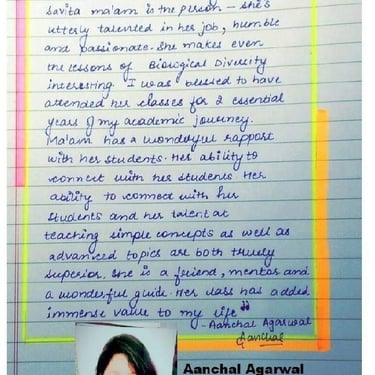 Savita ma'am is the person – she's
utterly talented in her job, humble
and passionate. She makes even
the lessons of Biological Diversity
interesting. I was blessed to have
attended her classes for 2 essential
years of my academic journey.
Ma'am has a wonderful rapport
with her students. Her ability to
connect with her students Her
ability to connect with her
students and her talent at
teaching simple concepts as well as
advanced topics are both truely
superior. She is a friend, mentor and
a wonderful guide. Her class has added
immense value to my life"
- Aanchal Agarwal
Aanchal
Aanchal Agarwal